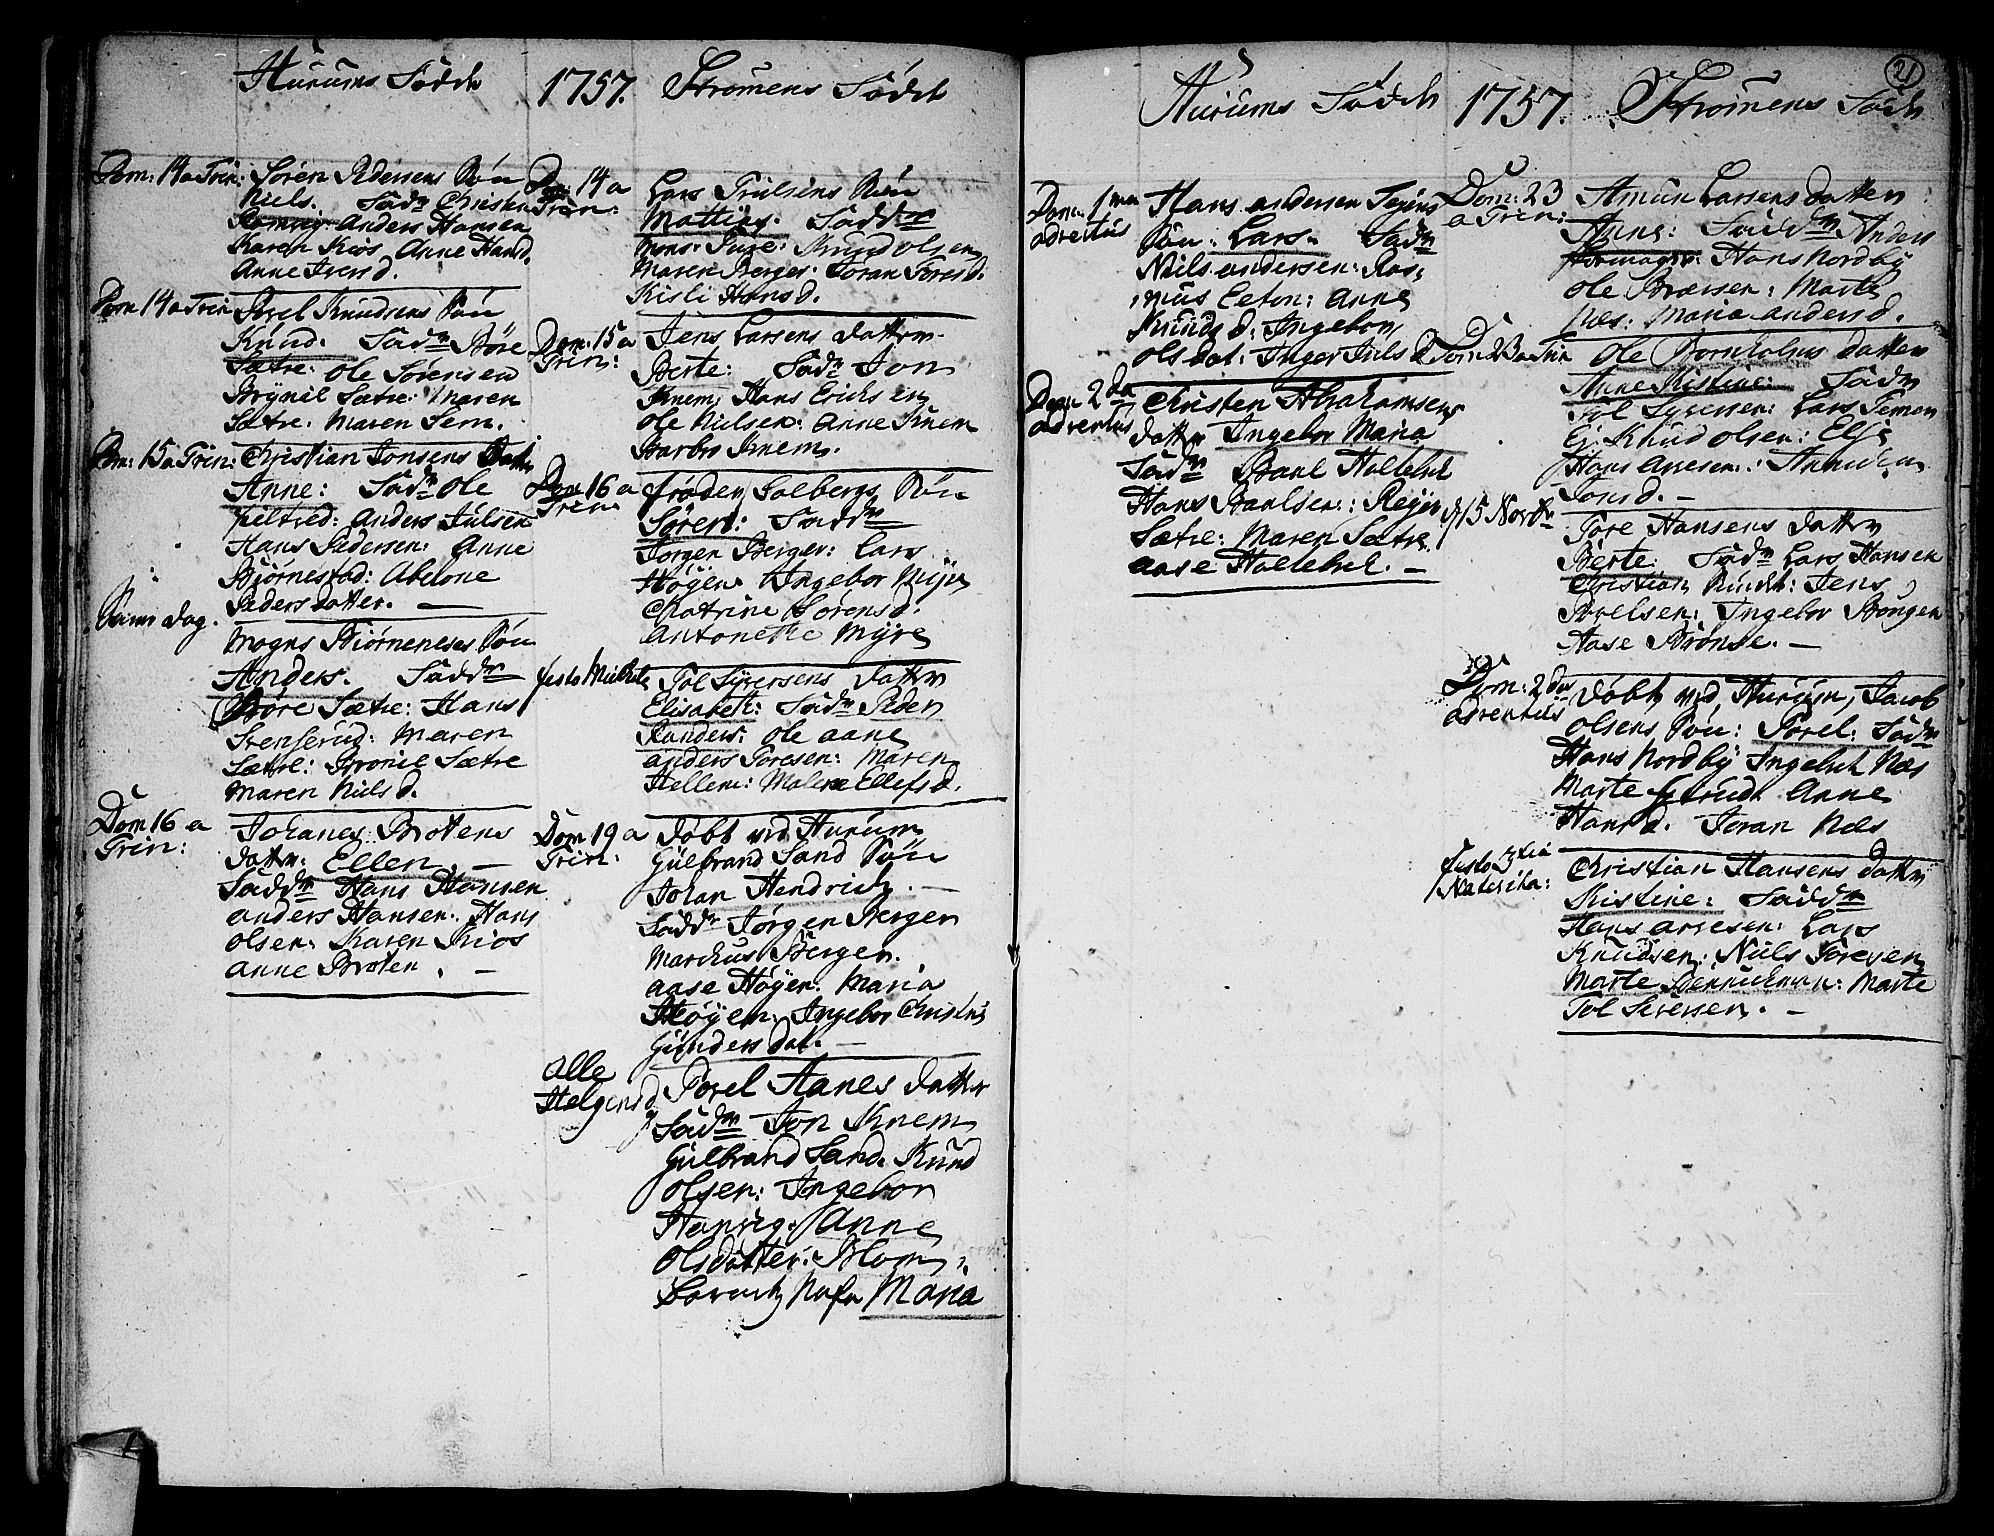 Hurums Födde
1757.
Strømens Födde
Dom: 14 a Trin:
Søren Pedersens Søn
Niels. Fadr
Anders Hansen
Karen Kios Anne Hansd.
Anne Iversd.
Dom 14 a Trin
Povel Knudsens Søn
Knud. Fadr Børe
Sætre: Ole Sörensen
Brynil Sætre: Maren
Sætre. Maren Sem.
Dom: 15 a Trin:
Christian Jonsens Datter
Anne: Fadr Ole
Anders Julsen
Hans Pedersen: Anne
Bjørnestad: Abelone
Peders datter. —
Samme dag.
Mogns Biørnenses Søn
Anders. Faddr
Børe Sætre: Hans
Svenserud: Maren
Sætre: Bronil Sætre
Maren Niels d.
Dom 16 a
Trin:
Johanes Brotens
datter: Ellen. —
Faddr Hans Hansen
Anders Hansen: Hans
Olsen: Karen Kios
Anne Broten. —
Dom: 14 a
Trin:
Lars Trulsens Søn
Mattias. Faddr
Knud Olsen
Maren Berger: Joran Toresd.
Kisli Hansd.
Dom: 15 a
Trin:
Jens Larsens datter
Berte: Fadr Jon
Knem: Hans Ericksen
Ole Nielsen: Anne Knem
Barbro Knem.
Dom 16 a
Trin.
Frøder Solbergs Søn
Sören: Faddr
Jørgen Berger: Lars
Høyen. Ingebor Myre
Chatrine Sörensd.
Antonette Myre
festo Michelis
Tol Syversens datter
Elisabeth: Fadr Peder
Randers: Ole Aane
Anders Toresen: Maren
Hellem: Malene Ellefsd.
Dom 19 a
Trin:
Døbt ved Hurum
Gulbrand Sand Søn
Johan Hendrich. —
Faddr Jørgen Berger
Marchus Berger.
Aase Høyen: Maria
Høyen: Ingebor Christens
Gunders dat. —
Alle
Helgens d.
Povel Aanes datter
Fadr Jon Knem
Gulbrand Sand. Knud
Olsen: Ingebor
Anne
Olsdatter:
Barnets Nafn Maria
Hurums Födde
1757.
Strømens Födde
21
Dom. 1 ma
adventus
Hans Andersen Tejens
Søn. Lars. Fadr
Niels Andersen: Ras-
mus Eeton: Anne
Knuds d: Ingebor
Ols dat: Inger Juls d
Dom 2 da
adventus
Christen Abrahamsens
datter Ingebor Maria
Fadr Paul Holtebek
Hans Paulsen: Reyer
Sætre: Maren Sætre
Aase Holtebek. —
Dom: 23
a Trin:
Amun Larsens datter
Anne: Faddr Anders
Hans Nordby
Ole Bræssen: Marte
Næs: Maria Andersd.
Dom 23 a Trin
Ole Bornholms datter
Anne Kistine: Fadr
Tol Syversen: Lars Temon
Ej: Knud Olsen: Else
Hans Arvesen:
Jonsd. —
d 15 Novbr
Tore Hansens datter
Berte: Fadr Lars Hansen
Christian Jens
Povelsen: Ingebor
Aase Brønse. —
Dom: 2 da
adventus
Døbt ved Hurum, Jacob
Olsens Søn: Povel: Fadr
Hans Nordby Ingebret Næs
Marte Anne
Hansd. Joran Næs
festo 3tia
Nativita:
Christian Hansens datter
Kistine: Faddr
Hans Arvesen: Lars
Knudsen: Niels Toresen
Marte Marte
Tol Siversen. —